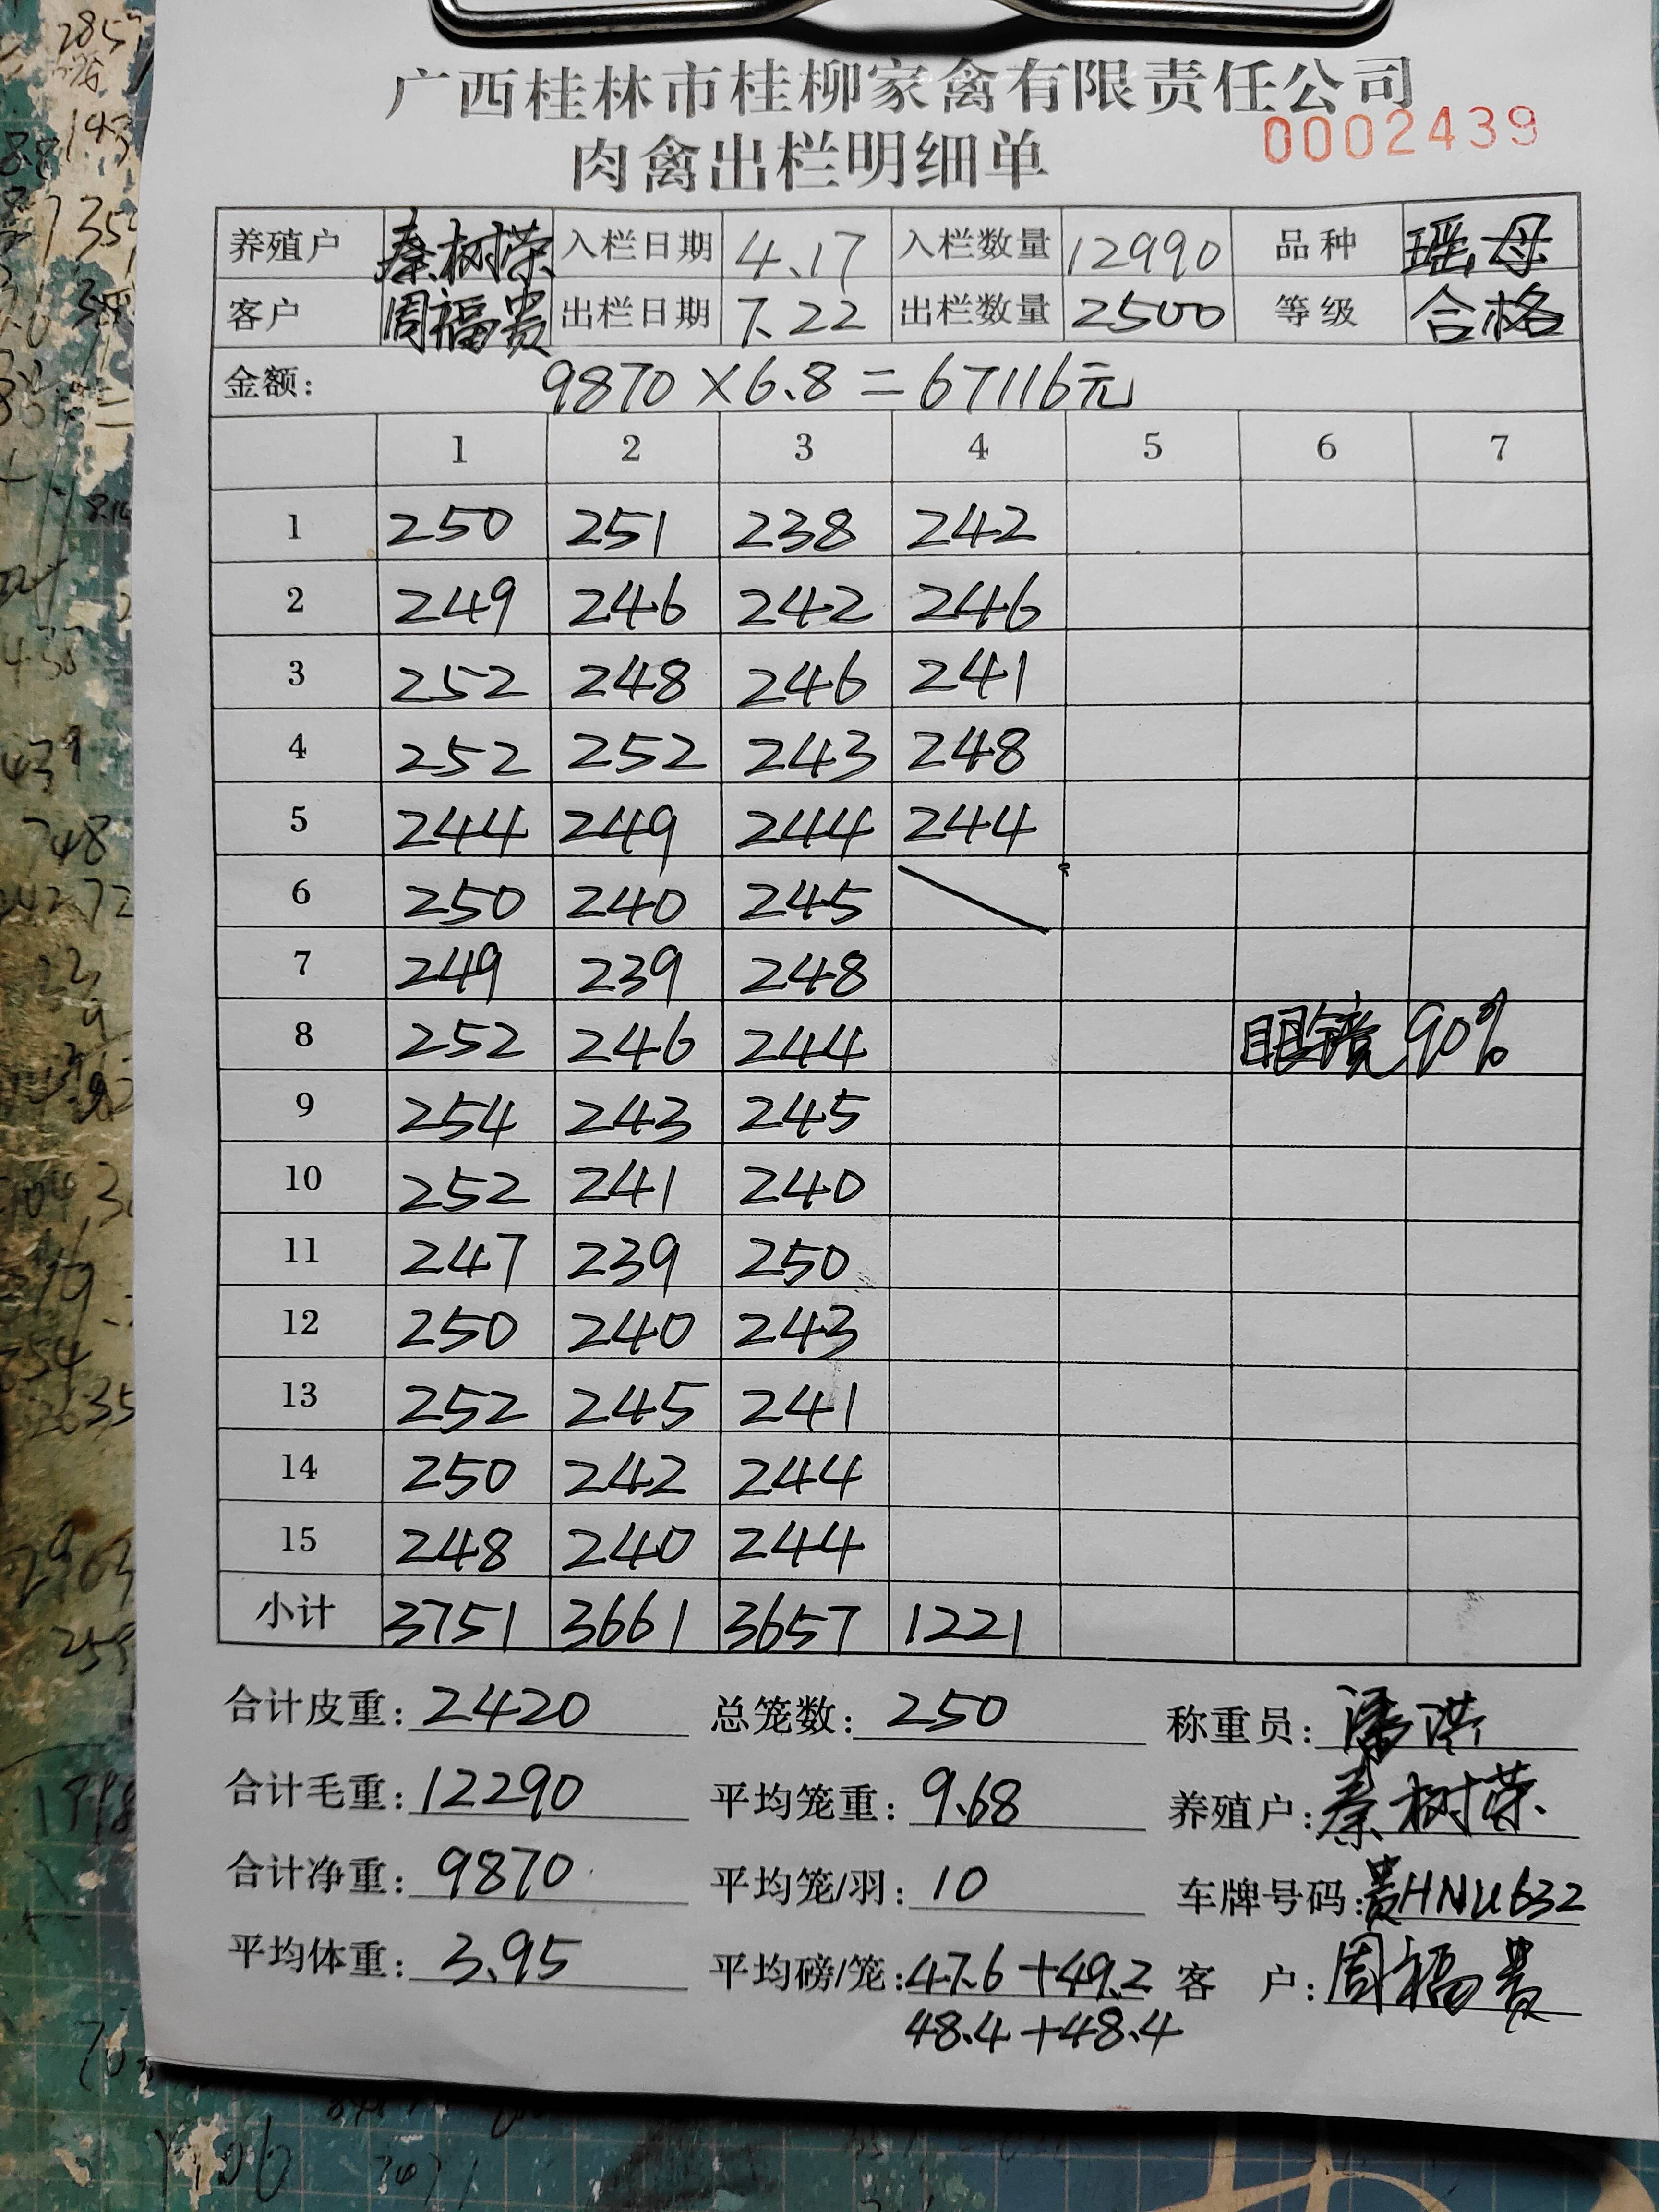 广西桂林市桂柳家禽有限责任公司
肉禽出栏明细单
0002439
养殖户 秦树荣 入栏日期 4.17 入栏数量 12990 品种 瑶母
客户 周福贵 出栏日期 7.22 出栏数量 2500 等级 合格
金额: 9870×6.8=67116元
1 2 3 4 5 6 7
1 250 251 238 242
2 249 246 242 246
3 252 248 246 241
4 252 252 243 248
5 244 249 244 244
6 250 240 245
7 249 239 248
8 252 246 244 眼镜90%
9 254 243 245
10 252 241 240
11 247 239 250
12 250 240 243
13 252 245 241
14 250 242 244
15 248 240 244
小计 3751 3661 3657 1221
合计皮重: 2420 总笼数: 250 称重员: 潘洪
合计毛重: 12290 平均笼重: 9.68 养殖户: 秦树荣
合计净重: 9870 平均笼/羽: 10 车牌号码: 贵HNU632
平均体重: 3.95 平均磅/笼: 47.6+49.2 客户: 周福贵
48.4+48.4